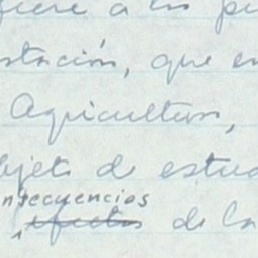 fiere a los pu
stación, que en
Agricultura,
bjeto de estud
nsecuencias
efectos de la